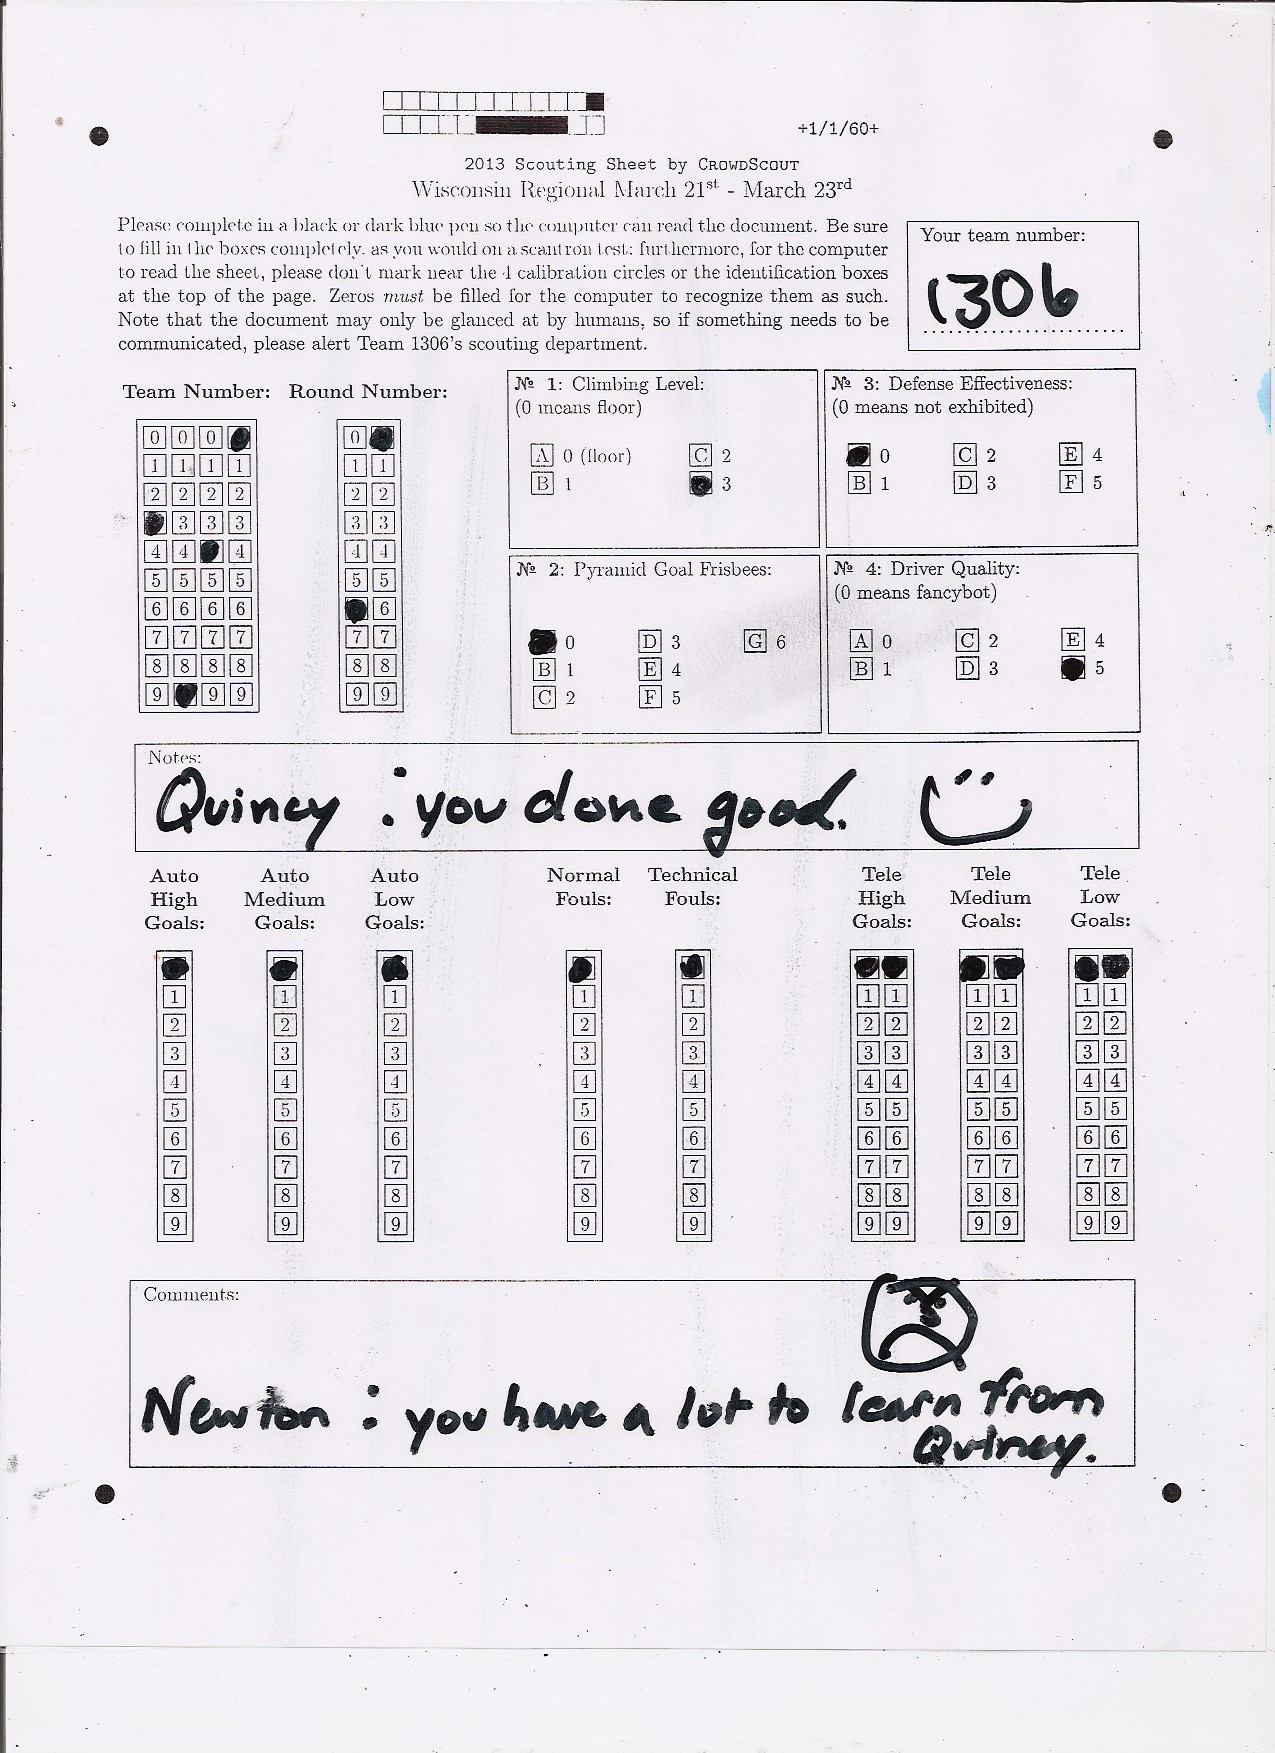 +1/1/60+
2013 Scouting Sheet by CROWDSCOUT
Wisconsin Regional March 21st - March 23rd
Please complete in a black or dark blue pen so the computer can read the document. Be sure
to fill in the boxes completely, as you would on a scantron test; furthermore, for the computer
to read the sheet, please don't mark near the 4 calibration circles or the identification boxes
at the top of the page. Zeros must be filled for the computer to recognize them as such.
Note that the document may only be glanced at by humans, so if something needs to be
communicated, please alert Team 1306's scouting department.
Your team number:
1306
Team Number: Round Number:
0 0 0 0
1 1 1 1 1 1
2 2 2 2 2 2
3 3 3 3 3
4 4 4 4 4
5 5 5 5 5 5
6 6 6 6 6
7 7 7 7 7 7
8 8 8 8 8 8
9 9 9 9 9
№ 1: Climbing Level:
(0 means floor)
A 0 (floor) C 2
B 1 3
№ 3: Defense Effectiveness:
(0 means not exhibited)
0 C 2 E 4
B 1 D 3 F 5
№ 2: Pyramid Goal Frisbees:
0 D 3 G 6
B 1 E 4
C 2 F 5
№ 4: Driver Quality:
(0 means fancybot)
A 0 C 2 E 4
B 1 D 3 5
Notes:
Quincy : you done good.
Auto High Goals: Auto Medium Goals: Auto Low Goals: Normal Fouls: Technical Fouls: Tele High Goals: Tele Medium Goals: Tele Low Goals:
1 1 1 1 1 1 1 1 1 1 1
2 2 2 2 2 2 2 2 2 2 2
3 3 3 3 3 3 3 3 3 3 3
4 4 4 4 4 4 4 4 4 4 4
5 5 5 5 5 5 5 5 5 5 5
6 6 6 6 6 6 6 6 6 6 6
7 7 7 7 7 7 7 7 7 7 7
8 8 8 8 8 8 8 8 8 8 8
9 9 9 9 9 9 9 9 9 9 9
Comments:
Newton : you have a lot to learn from
Quincy.